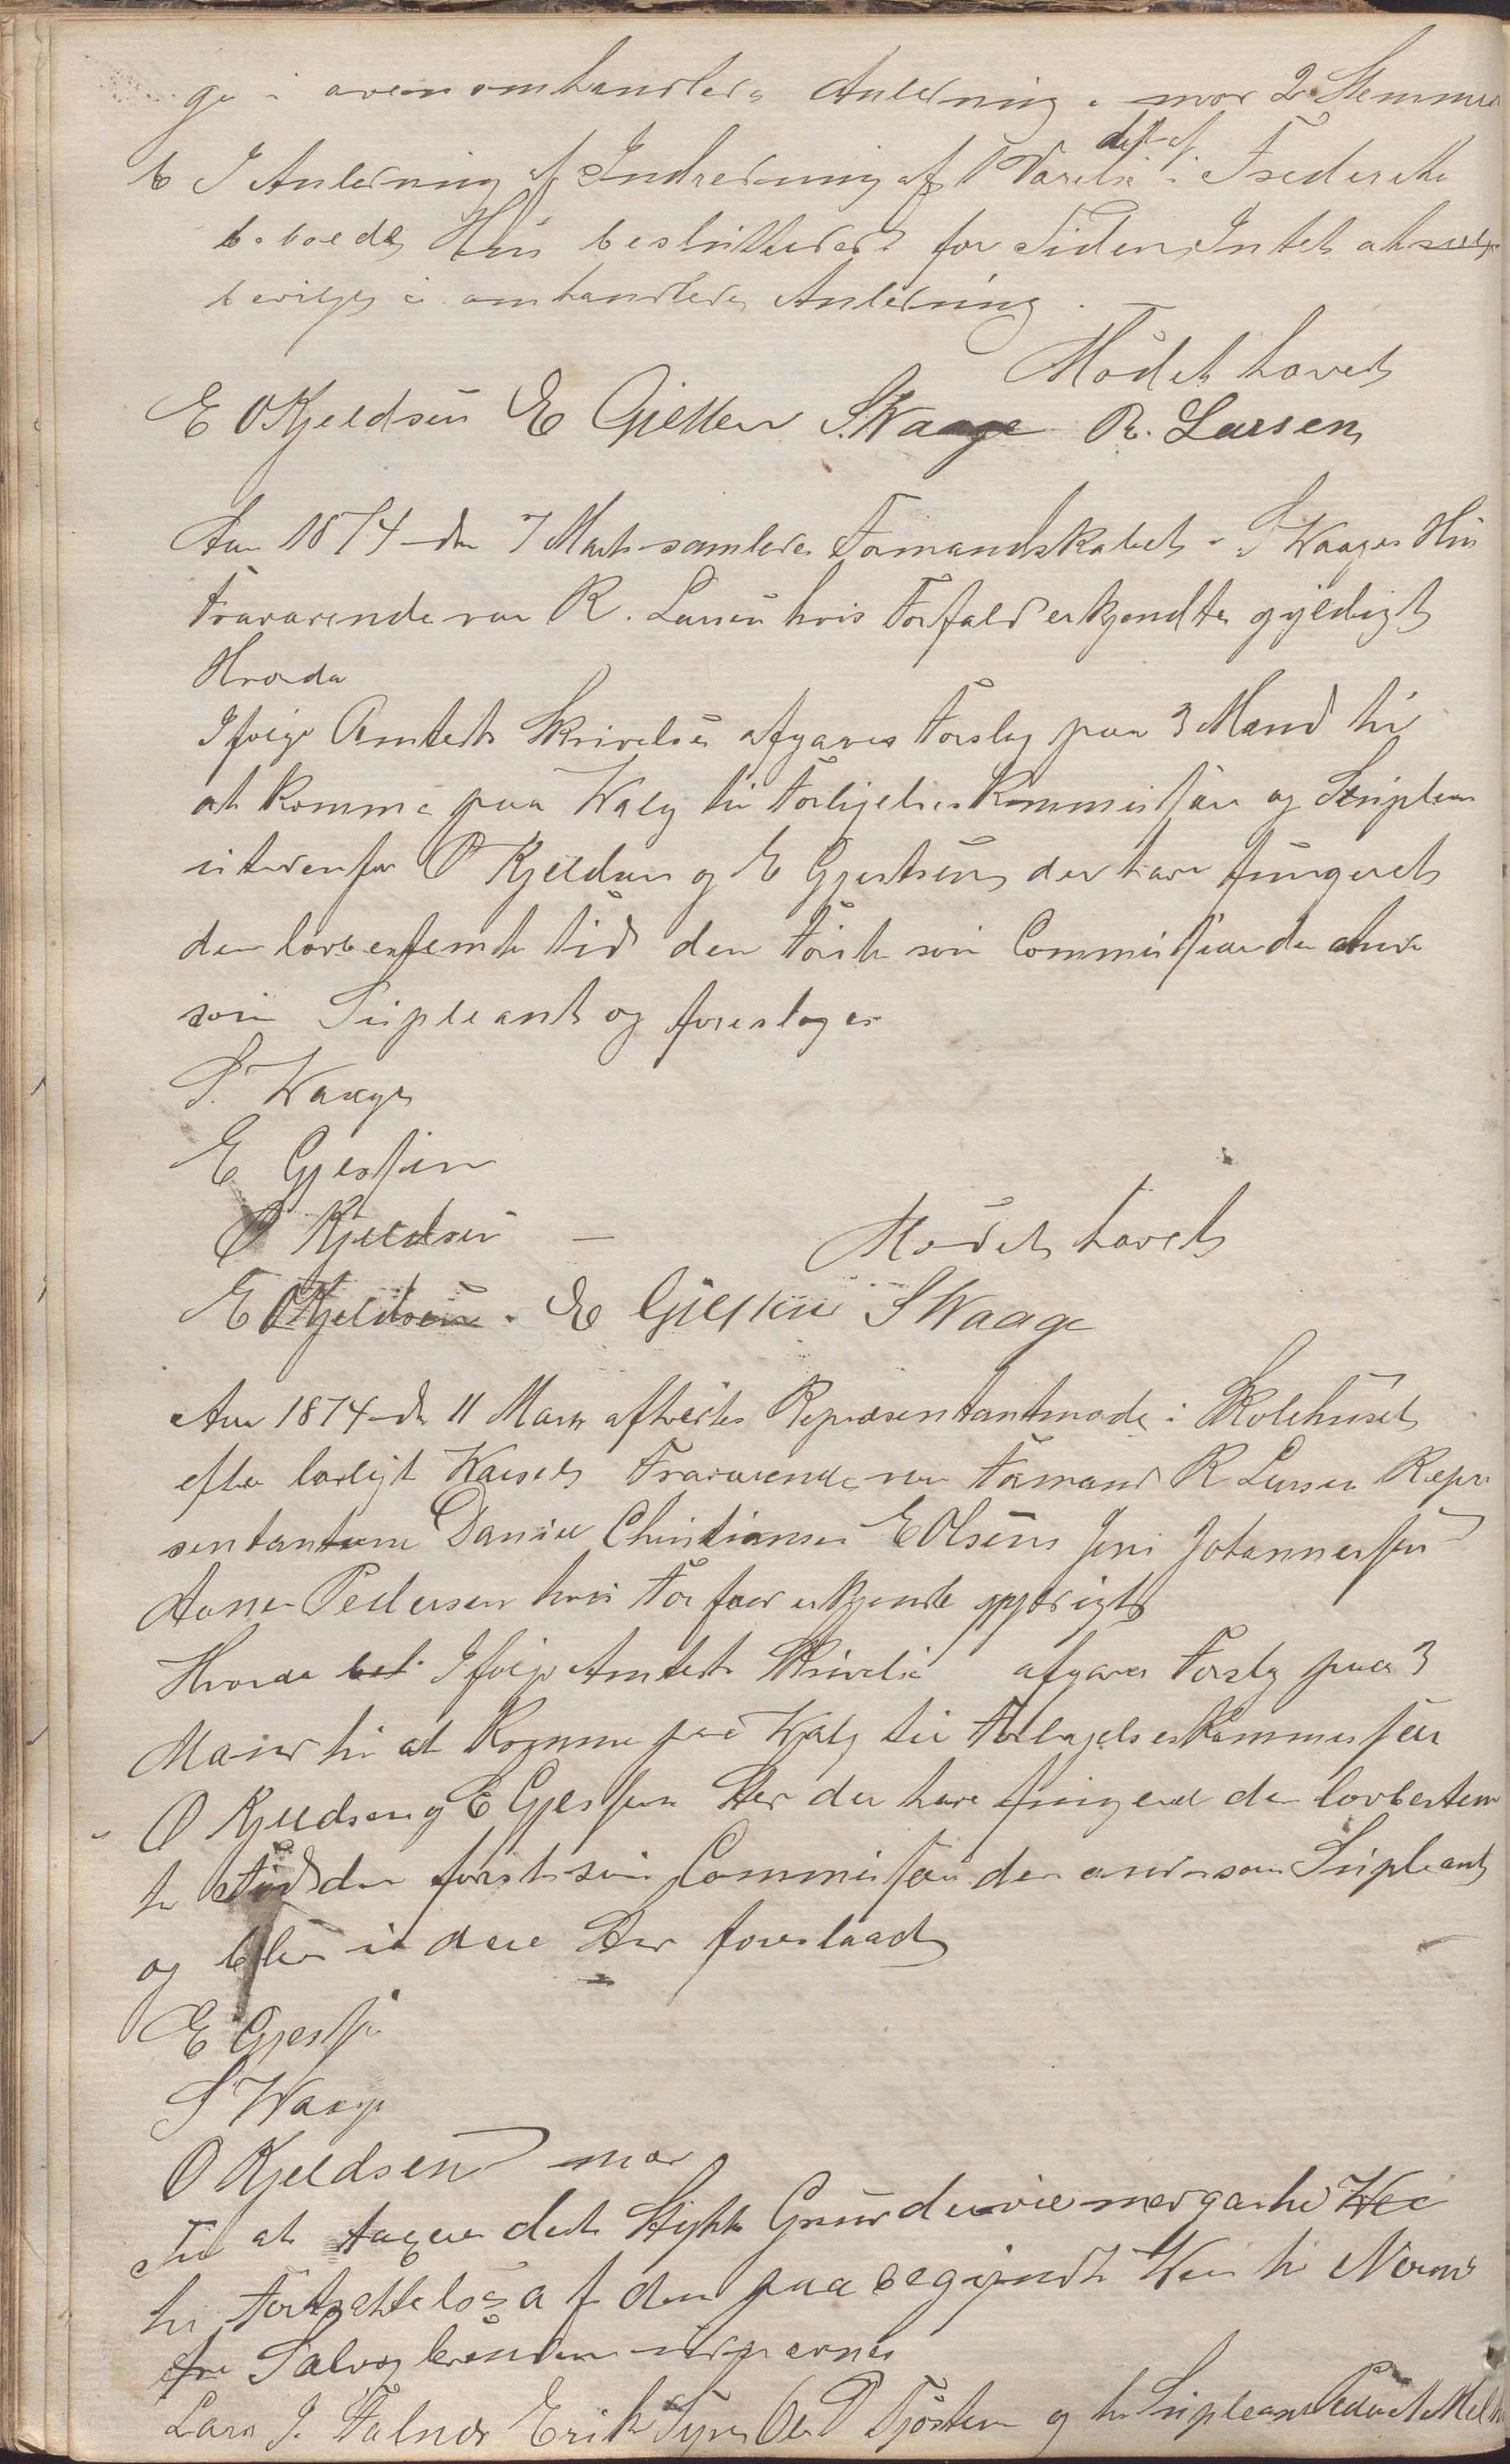 ge i ovenomhandlede Anledning. mod 2 Stemmer
6 I Anledning af Indredning af 1 Værelse i Frederiks
deft af
beboede Hus besluttedes for Tiden Intet at
bevilges i omhandlede Anledning.
Mødet hævet
E O Kjeldsen E Gjessen S. Waage R. Larsen
Aar 1874 den 7 Marts samledes Formandskabet i S Waages Hus
Fraværende var R. Larsen hvis Forfald erkjendtes gyldigt
Hvorda
Ifølge Amtets Skrivelse afgaves Forslag paa 3 Mænd til
at komme paa Valg til Forligelseskommissær og Supleant
istedenfor O Kjeldsen og E Gjestsen der have fungeret
den lovbestemte Tid den første som Commissær den anden
som Supleant og foreslages
S. Waage
E Gjessen
O Kjeldsen — Mødet hævet
E O Kjeldsen. E Gjessen S Waage
Aar 1874 den 11 Marts afholdtes Repræsentantmøde i Skolehuset
efter lovligt Varsel Fraværende var Formand R Larsen Repræ
sentanterne Daniel Christiansen E Olsen Jens Johannessen
Aanen Pedersen hvis Forfald erkjendte gyldigt
Hvorda bet. Ifølge Amtets Skrivelse afgaves Forslag paa 3
Mænd til at komme paa Valg til Forligelseskommissær
O Kjeldsen og E Gjessen Sted der have fungeret den lovbestem
te Tid den første som Commissær den anden som Supleant
og blev i deres Sted foreslaaet
E Gjessen
S Waage
O Kjeldsen mod
Til at taxere det Stykke Grund som medgaar til Vei
til Fortsættelse af den paabegyndte Vei til
fra Salvøg
Lars J. Falnes Erik Tyse Ole T Tjøsten og til Supleant